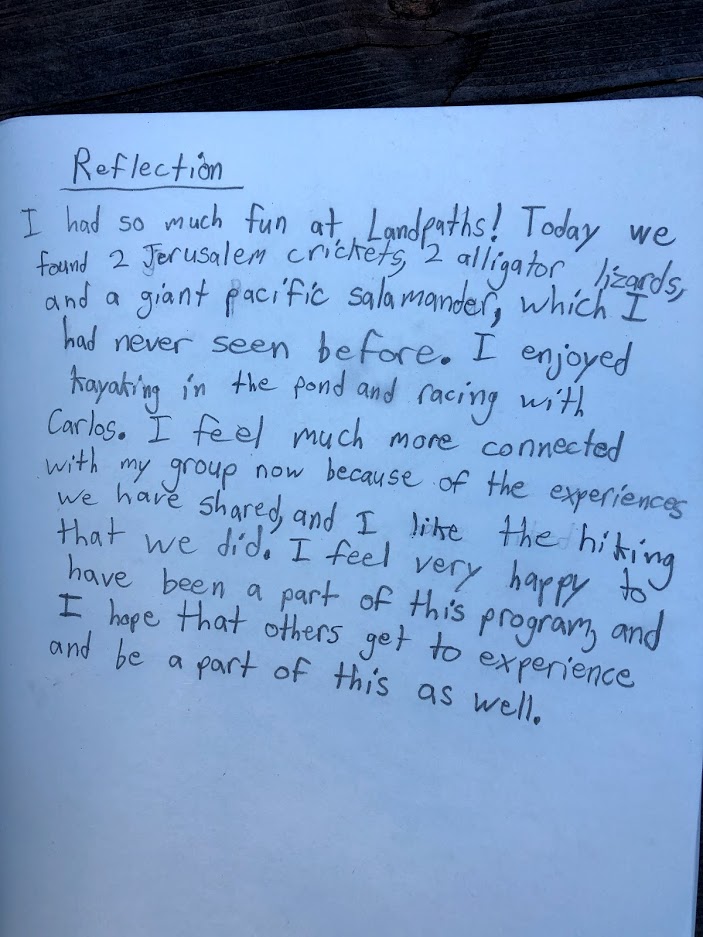 Reflection
I had so much fun at Landpaths! Today we
found 2 Jerusalem crickets, 2 alligator lizards,
and a giant pacific salamander, which I
had never seen before. I enjoyed
kayaking in the pond and racing with
Carlos. I feel much more connected
with my group now because of the experiences
we have shared, and I like the hiking
that we did. I feel very happy to
have been a part of this program, and
I hope that others get to experience
and be a part of this as well.